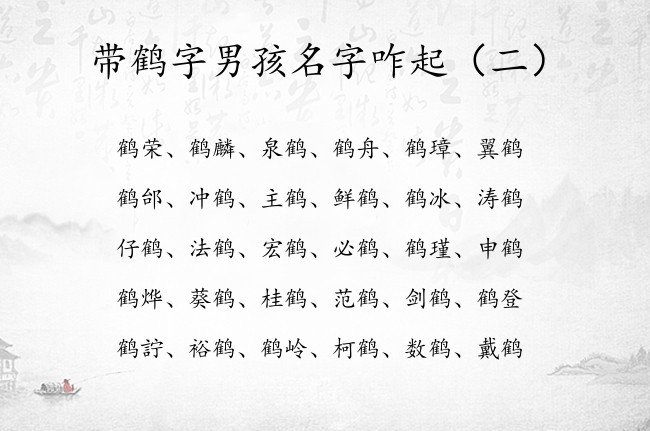 带鹤字男孩名字咋起（二）
鹤荣、鹤麟、泉鹤、鹤舟、鹤璋、翼鹤
鹤邰、冲鹤、主鹤、鲜鹤、鹤冰、涛鹤
仔鹤、法鹤、宏鹤、必鹤、鹤瑾、申鹤
鹤烨、葵鹤、桂鹤、范鹤、剑鹤、鹤登
鹤詝、裕鹤、鹤岭、柯鹤、数鹤、戴鹤